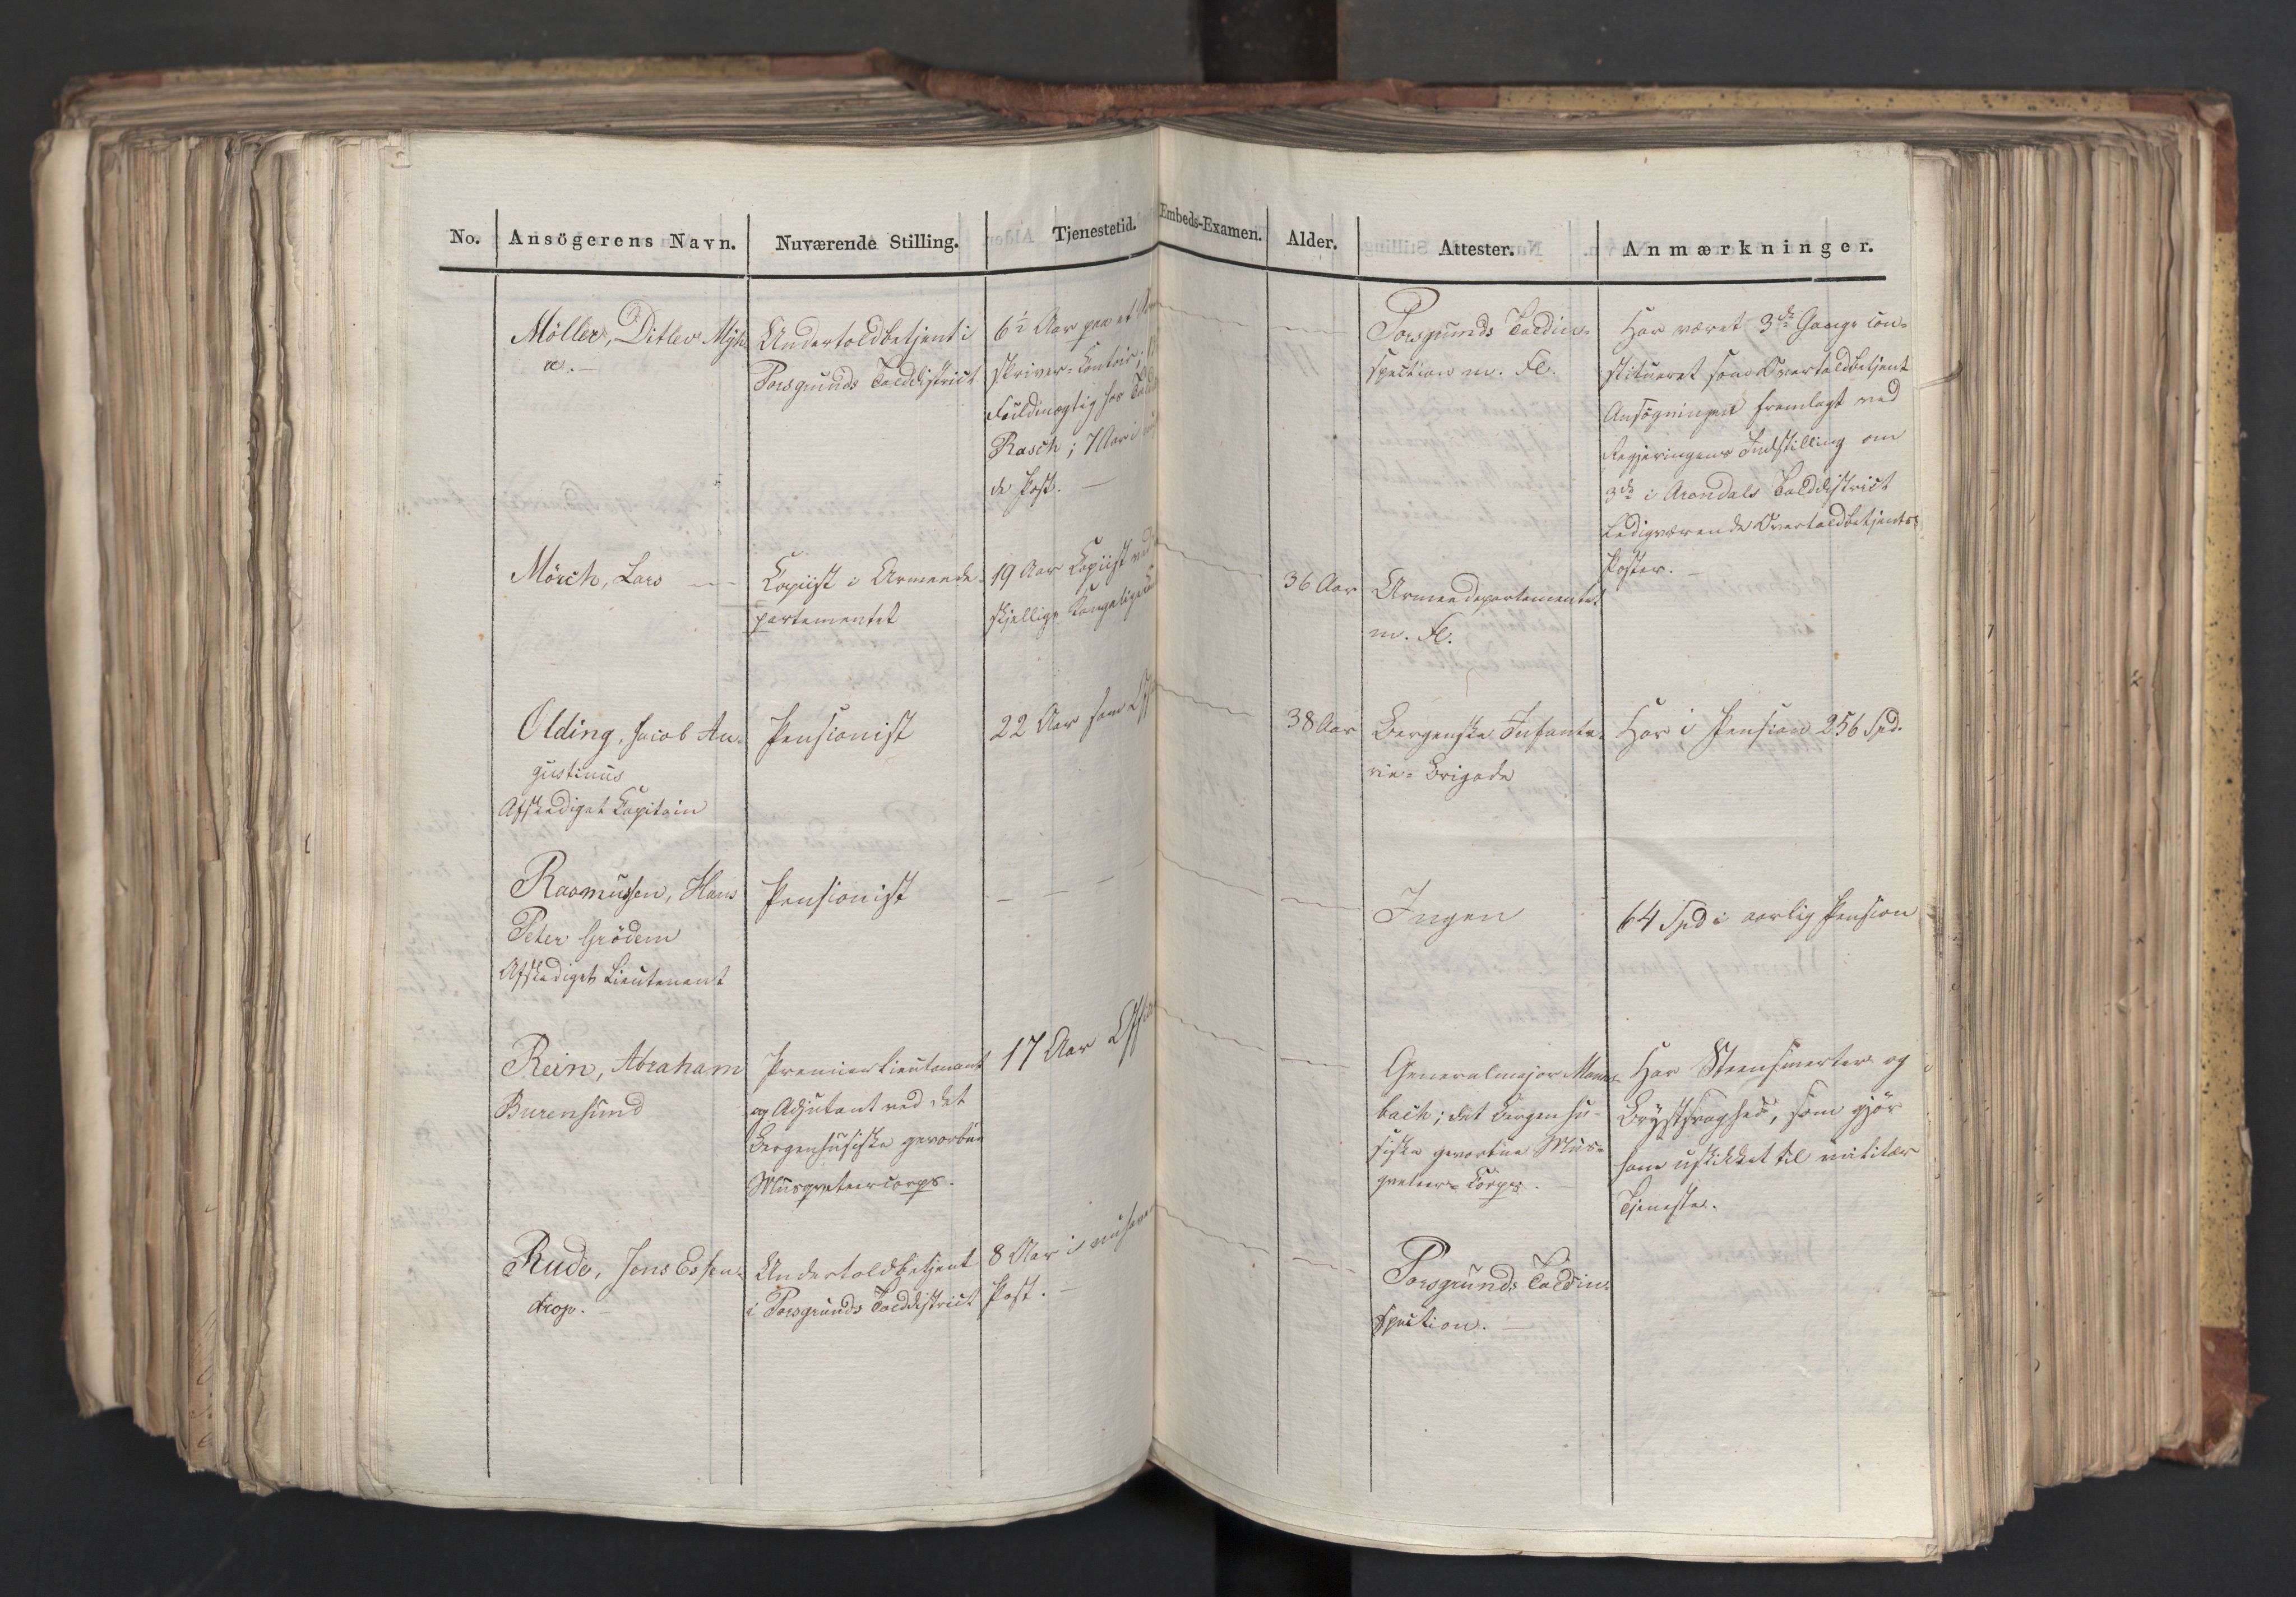 No. Ansögerens Navn. Nuværende Stilling. Tjenestetid. Embeds-Examen. Alder. Attester. Anmærkninger.
Möller, Ditlev
Undertoldbetjent i
Porsgrunds Tolddistrict
6½ Aar paa et
skriver-Contoir;
Fuldmægtig hos
Rasch; 7 Aar i
de Post. —
Porsgrunds Toldin-
spection m. Fl.
Har været 3de Gange con-
stitueret som Overtoldbetjent
Ansögningen fremlagt ved
Regjeringens Indstilling om
3de i Arendals Tolddistrict
ledigværende Overtoldbetjents
Poster. —
Mörch, Lars —
Kopiist i Armeede-
partementet
19 Aar Kopiist ved
skjellige Kongelige
36 Aar
Armeedepartementet
m. Fl.
Olding, Jacob Au-
gustinus
Afskediget Capitain
Pensionist
22 Aar som
38 Aar
Bergenske Infante-
rie-Brigade
Har i Pension 256 Spd.
Rasmussen, Hans
Peter Grödem
Afskediget Lieutenant
Pensionist
— — —
Ingen
64 Spd i aarlig Pension
Rein, Abraham
Burensund
Premierlieutenant
og Adjutant ved det
Bergenhusiske gevorbne
Musqveteercorps.
17 Aar
Generalmajor Mans-
bach; det Bergenhu-
siske gevorbne Mus-
qveteer-Corps. —
Har Steensmerter og
Brystsvaghed, som gjör
ham uskikket til militær
Tjeneste.
Rude, Jens Essen-
drop. —
Undertoldbetjent
i Porsgrunds Tolddistrict
8 Aar i
Post. —
Porsgrunds Toldin-
spection. —